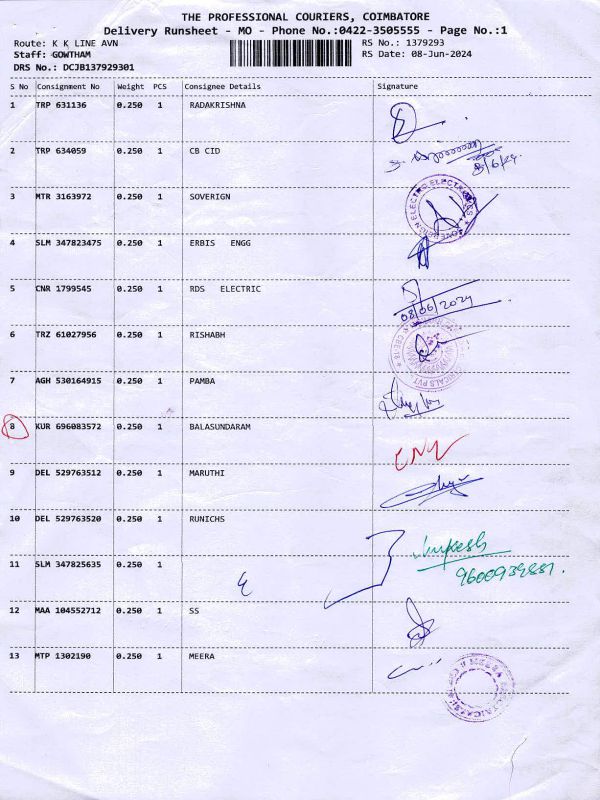 THE PROFESSIONAL COURIERS, COIMBATORE
Delivery Runsheet - MO - Phone No.:0422-3505555 - Page No.:1
Route: K K LINE AVN RS No.: 1379293
Staff: GOWTHAM RS Date: 08-Jun-2024
DRS No.: DCJB137929301
S No Consignment No Weight PCS Consignee Details Signature
1 TRP 631136 0.250 1 RADAKRISHNA
2 TRP 634059 0.250 1 CB CID
8/6/24
3 MTR 3163972 0.250 1 SOVERIGN
4 SLM 347823475 0.250 1 ERBIS ENGG
5 CNR 1799545 0.250 1 RDS ELECTRIC
08/06/2024
6 TRZ 61027956 0.250 1 RISHABH
7 AGH 530164915 0.250 1 PAMBA
8 KUR 696083572 0.250 1 BALASUNDARAM
9 DEL 529763512 0.250 1 MARUTHI
10 DEL 529763520 0.250 1 RUNICHS
11 SLM 347825635 0.250 1
12 MAA 104552712 0.250 1 SS
13 MTP 1302190 0.250 1 MEERA